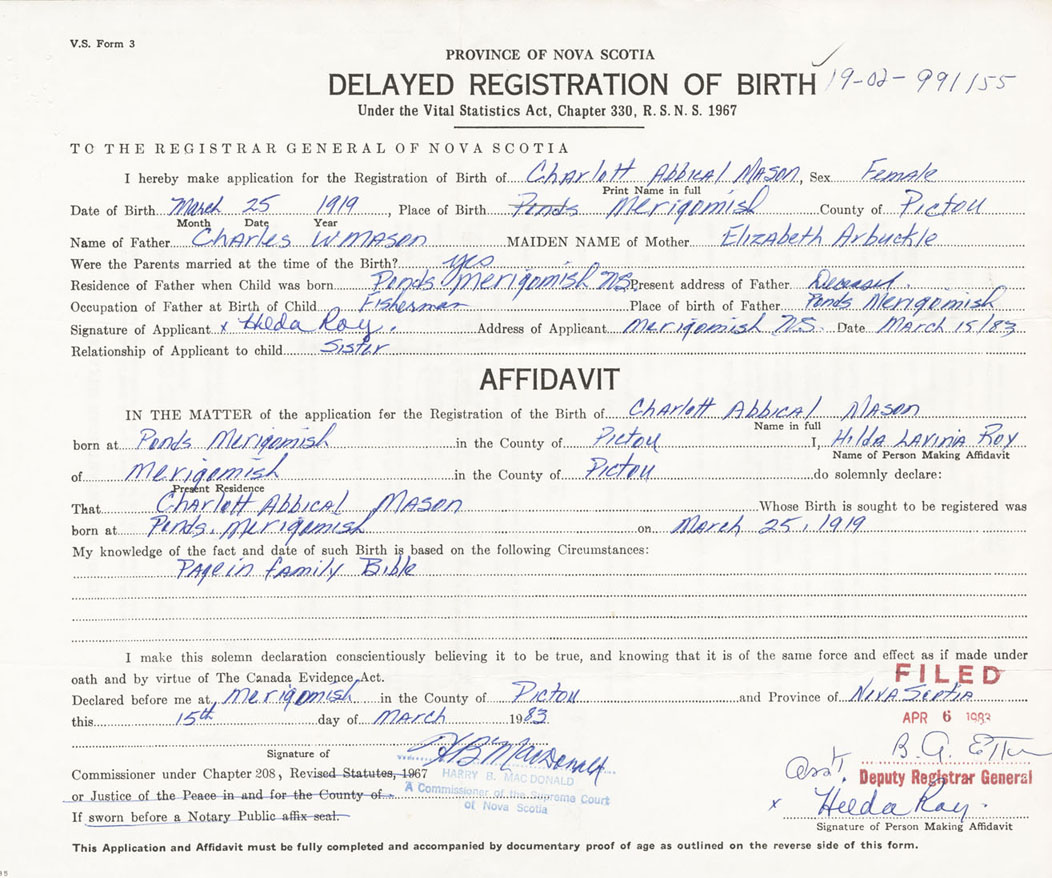 V.S. Form 3
PROVINCE OF NOVA SCOTIA
DELAYED REGISTRATION OF BIRTH 19-02-991155
Under the Vital Statistics Act, Chapter 330, R.S.N.S. 1967
TO THE REGISTRAR GENERAL OF NOVA SCOTIA
I hereby make application for the Registration of Birth of Charlott Abbical Mason, Sex Female
Print Name in full
Date of Birth March 25 1919, Place of Birth Ponds Merigomish County of Pictou
Month Date Year
Name of Father Charles W Mason MAIDEN NAME of Mother Elizabeth Arbuckle
Were the Parents married at the time of the Birth? yes
Residence of Father when Child was born Ponds Merigomish NS. Present address of Father Deceased.
Occupation of Father at Birth of Child Fisherman Place of birth of Father Ponds Merigomish
Signature of Applicant x Hilda Roy. Address of Applicant Merigomish NS. Date March 15/83
Relationship of Applicant to child Sister
AFFIDAVIT
IN THE MATTER of the application for the Registration of the Birth of Charlott Abbical Mason
Name in full
born at Ponds Merigomish in the County of Pictou I, Hilda Lavinia Roy
Name of Person Making Affidavit
of Merigomish in the County of Pictou do solemnly declare:
Present Residence
That Charlott Abbical Mason Whose Birth is sought to be registered was
born at Ponds, Merigomish on March 25, 1919
My knowledge of the fact and date of such Birth is based on the following Circumstances:
Page in family Bible
I make this solemn declaration conscientiously believing it to be true, and knowing that it is of the same force and effect as if made under
oath and by virtue of The Canada Evidence Act.
FILED
Declared before me at Merigomish in the County of Pictou and Province of Nova Scotia
this 15th day of March 1983.
APR 6 1983
Signature of H B MacDonald
B. G.
Commissioner under Chapter 208, Revised Statutes, 1967
HARRY B. MACDONALD
Asst. Deputy Registrar General
or Justice of the Peace in and for the County of
A Commissioner of the Supreme Court
of Nova Scotia
x Hilda Roy.
If sworn before a Notary Public affix seal.
Signature of Person Making Affidavit
This Application and Affidavit must be fully completed and accompanied by documentary proof of age as outlined on the reverse side of this form.